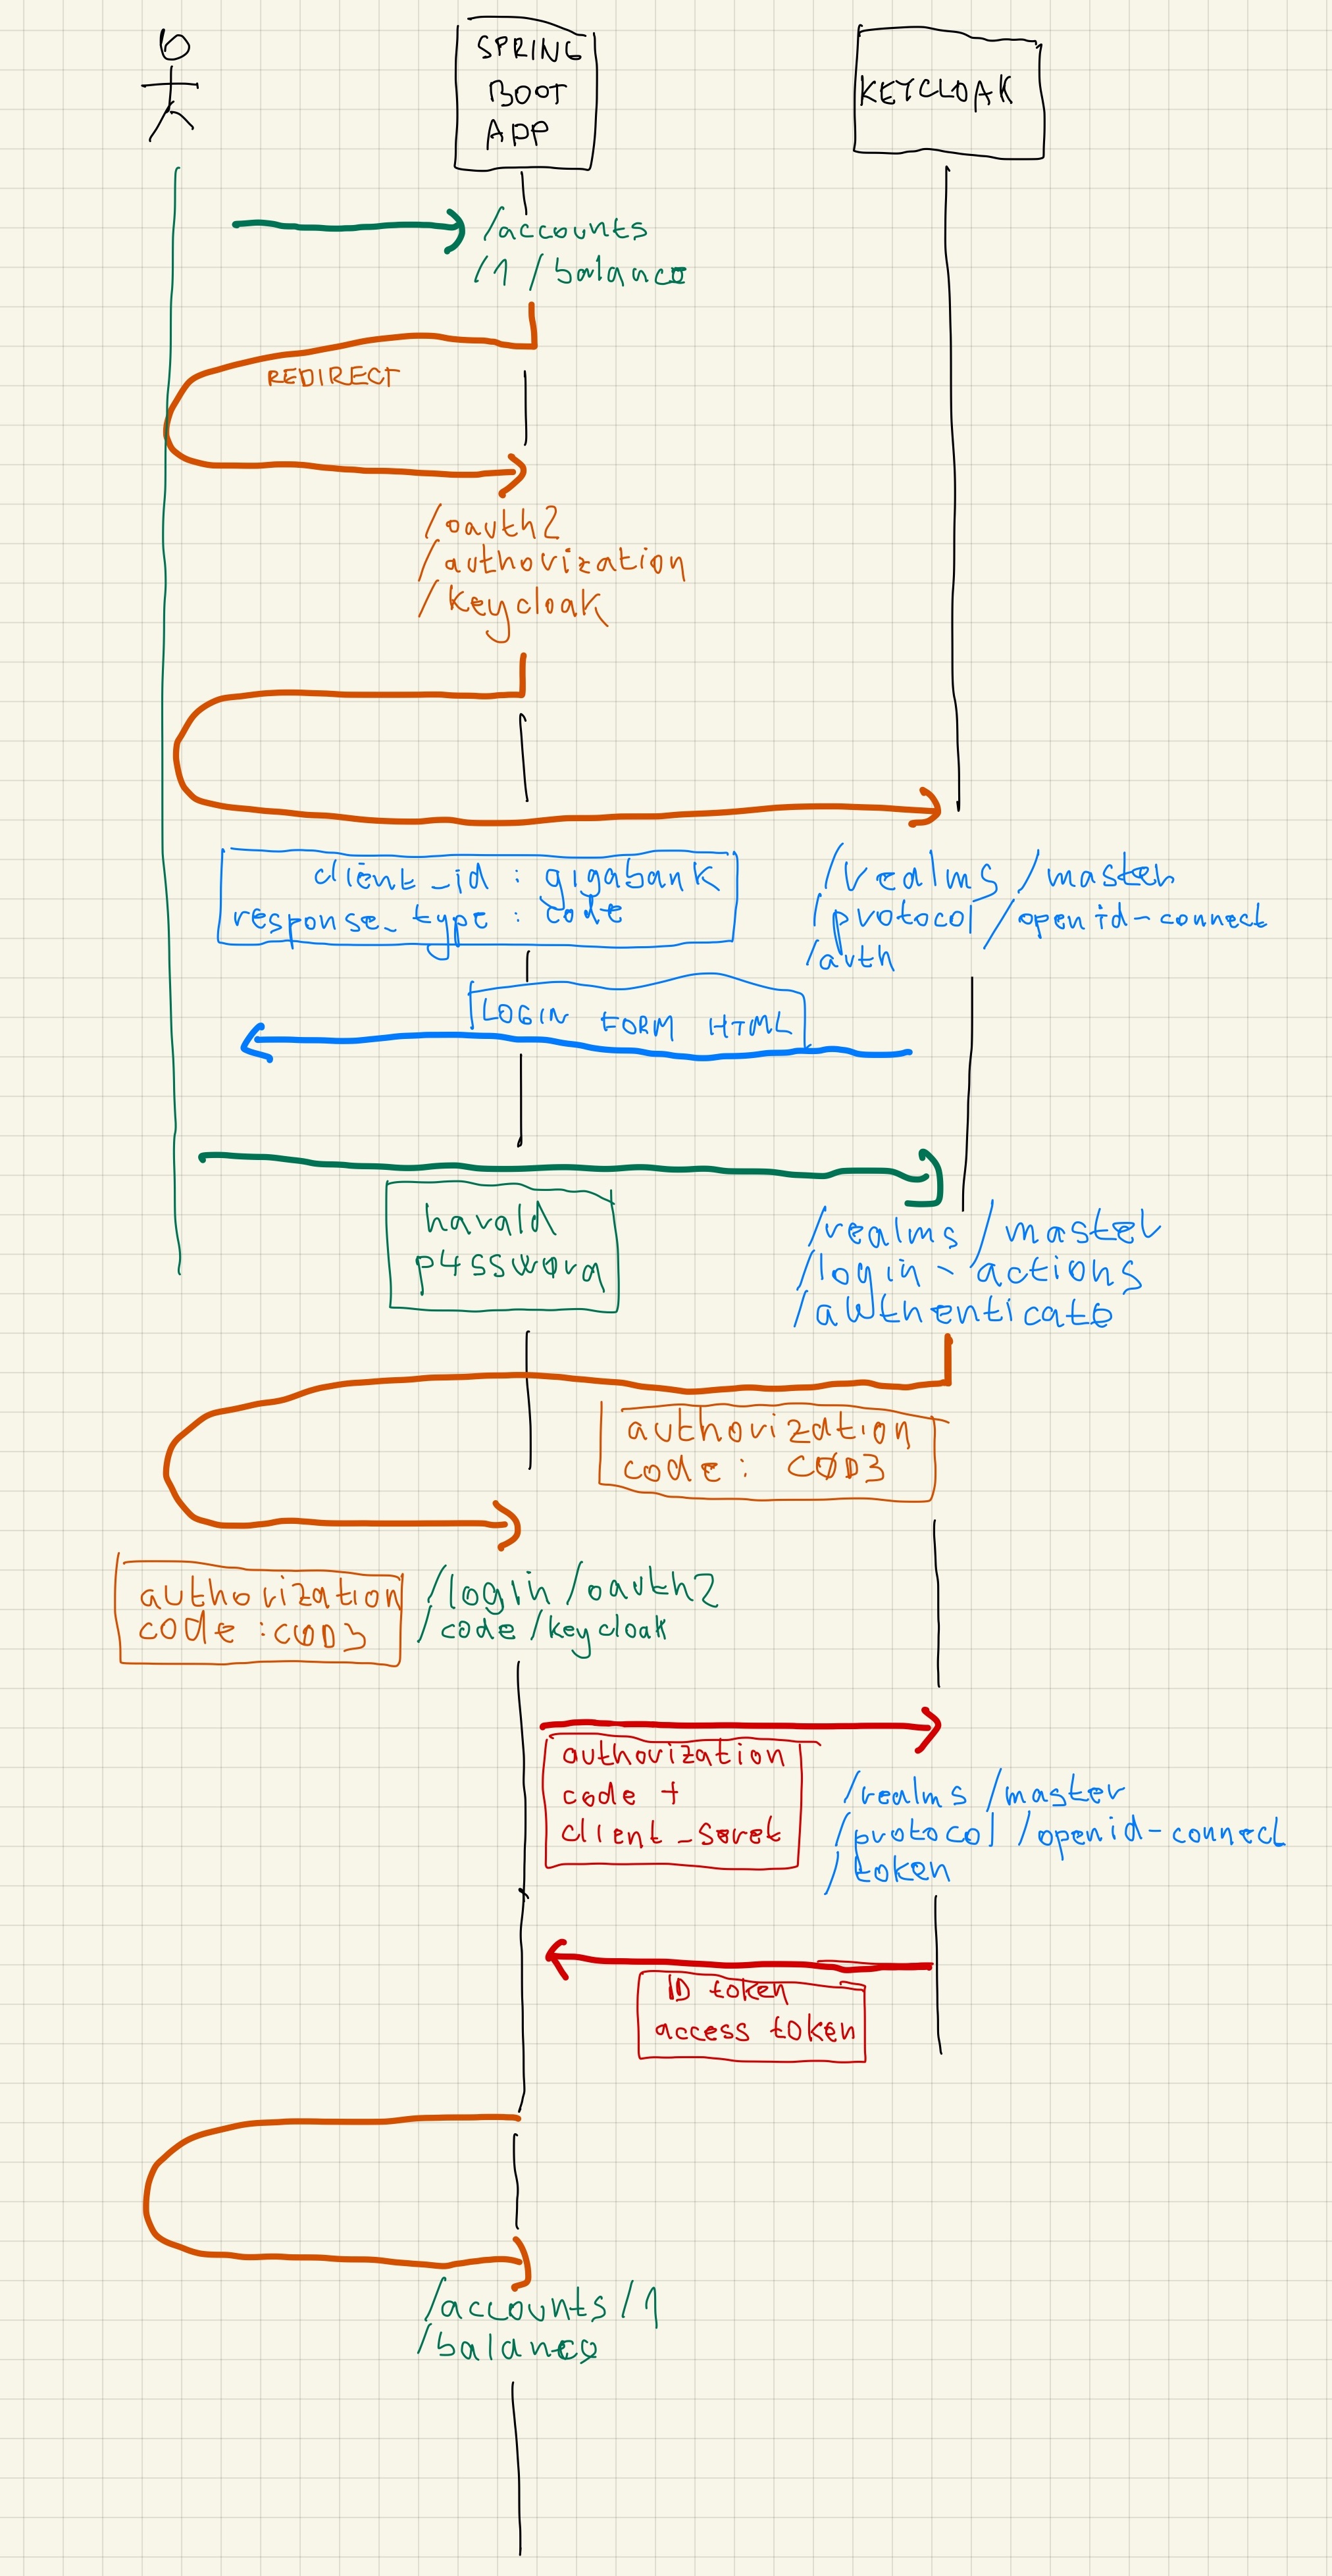 SPRING
BOOT
APP
KEYCLOAK
/accounts
/1/balance
REDIRECT
/oauth2
/authorization
/keycloak
client_id : gigabank
response_type : code
/realms/master
/protocol/openid-connect
/auth
LOGIN FORM HTML
harald
p4ssword
/realms/master
/login-actions
/authenticate
authorization
code: C0D3
authorization
code:C0D3
/login/oauth2
/code/keycloak
authorization
code +
client_seret
/realms/master
/protocol/openid-connect
/token
ID token
access token
/accounts/1
/balance